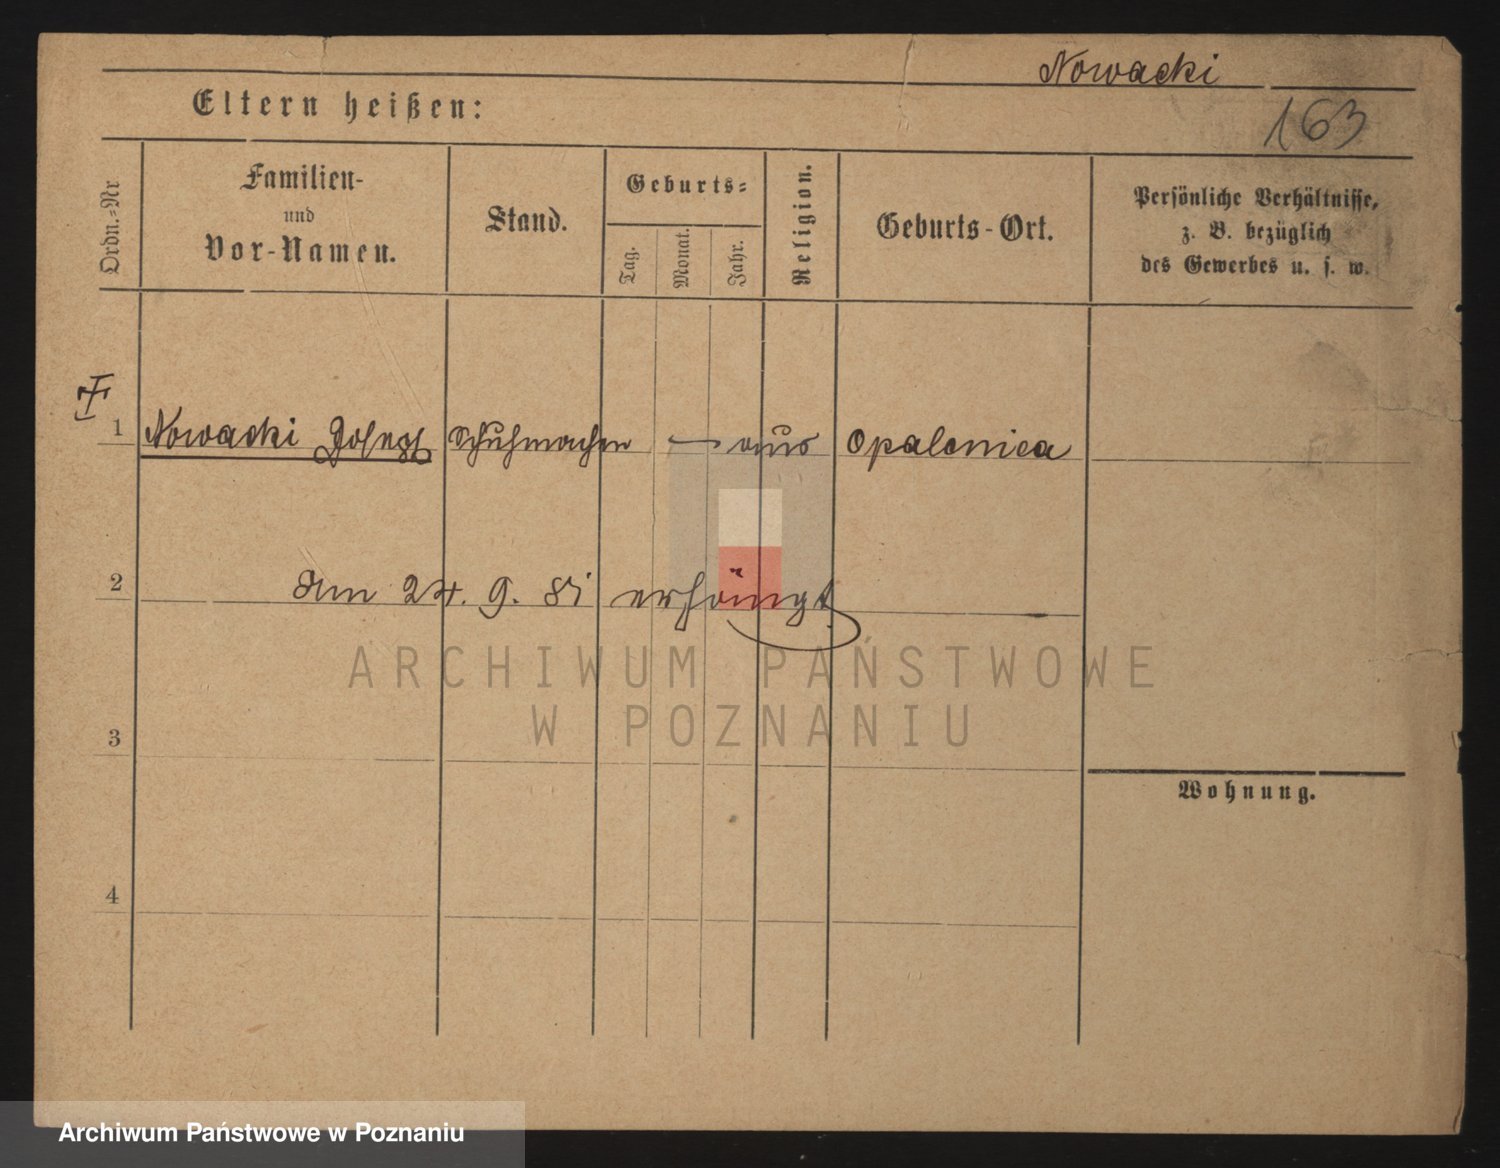 Nowacki
Eltern heißen:
163
Ordn.-Nr
Familien-
und
Vor-Namen.
Stand.
Geburts-
Tag.
Monat.
Jahr.
Religion.
Geburts-Ort.
Persönliche Verhältnisse,
z. B. bezüglich
des Gewerbes u. s. w.
1 Nowacki Josef Schuhmacher — aus Opalenica
2 Am 24. 9. 81 erhängt
ARCHIWUM PAŃSTWOWE
W POZNANIU
3
Wohnung.
4
Archiwum Państwowe w Poznaniu